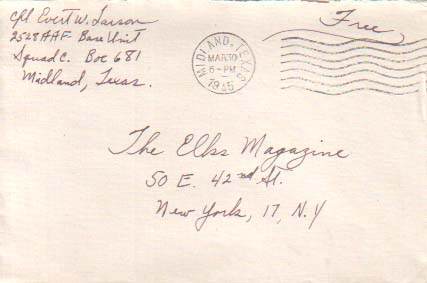 Cpl Evert W. Larson
2528 AAF Base Unit
Squad C. Box 681
Midland, Texas.
MIDLAND, TEXAS
MAR 10
6-PM
1945
Free
The Elks Magazine
50 E. 42nd St.
New York, 17, N.Y